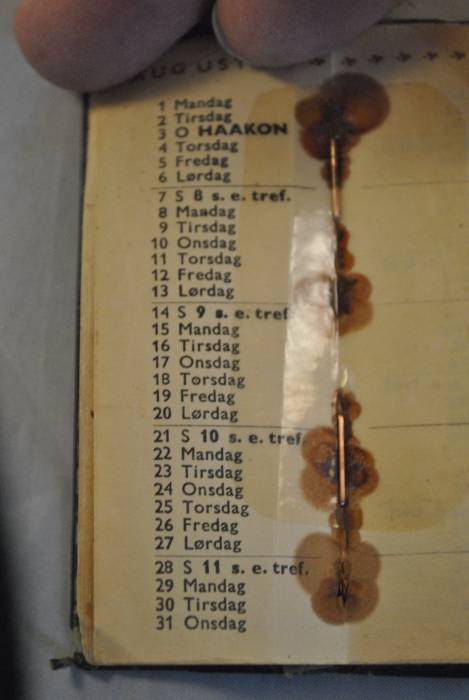 AUGUST
1 Mandag
2 Tirsdag
3 O HAAKON
4 Torsdag
5 Fredag
6 Lørdag
7 S 8 s. e. tref.
8 Mandag
9 Tirsdag
10 Onsdag
11 Torsdag
12 Fredag
13 Lørdag
14 S 9 s. e. tref
15 Mandag
16 Tirsdag
17 Onsdag
18 Torsdag
19 Fredag
20 Lørdag
21 S 10 s. e. tref.
22 Mandag
23 Tirsdag
24 Onsdag
25 Torsdag
26 Fredag
27 Lørdag
28 S 11 s. e. tref.
29 Mandag
30 Tirsdag
31 Onsdag